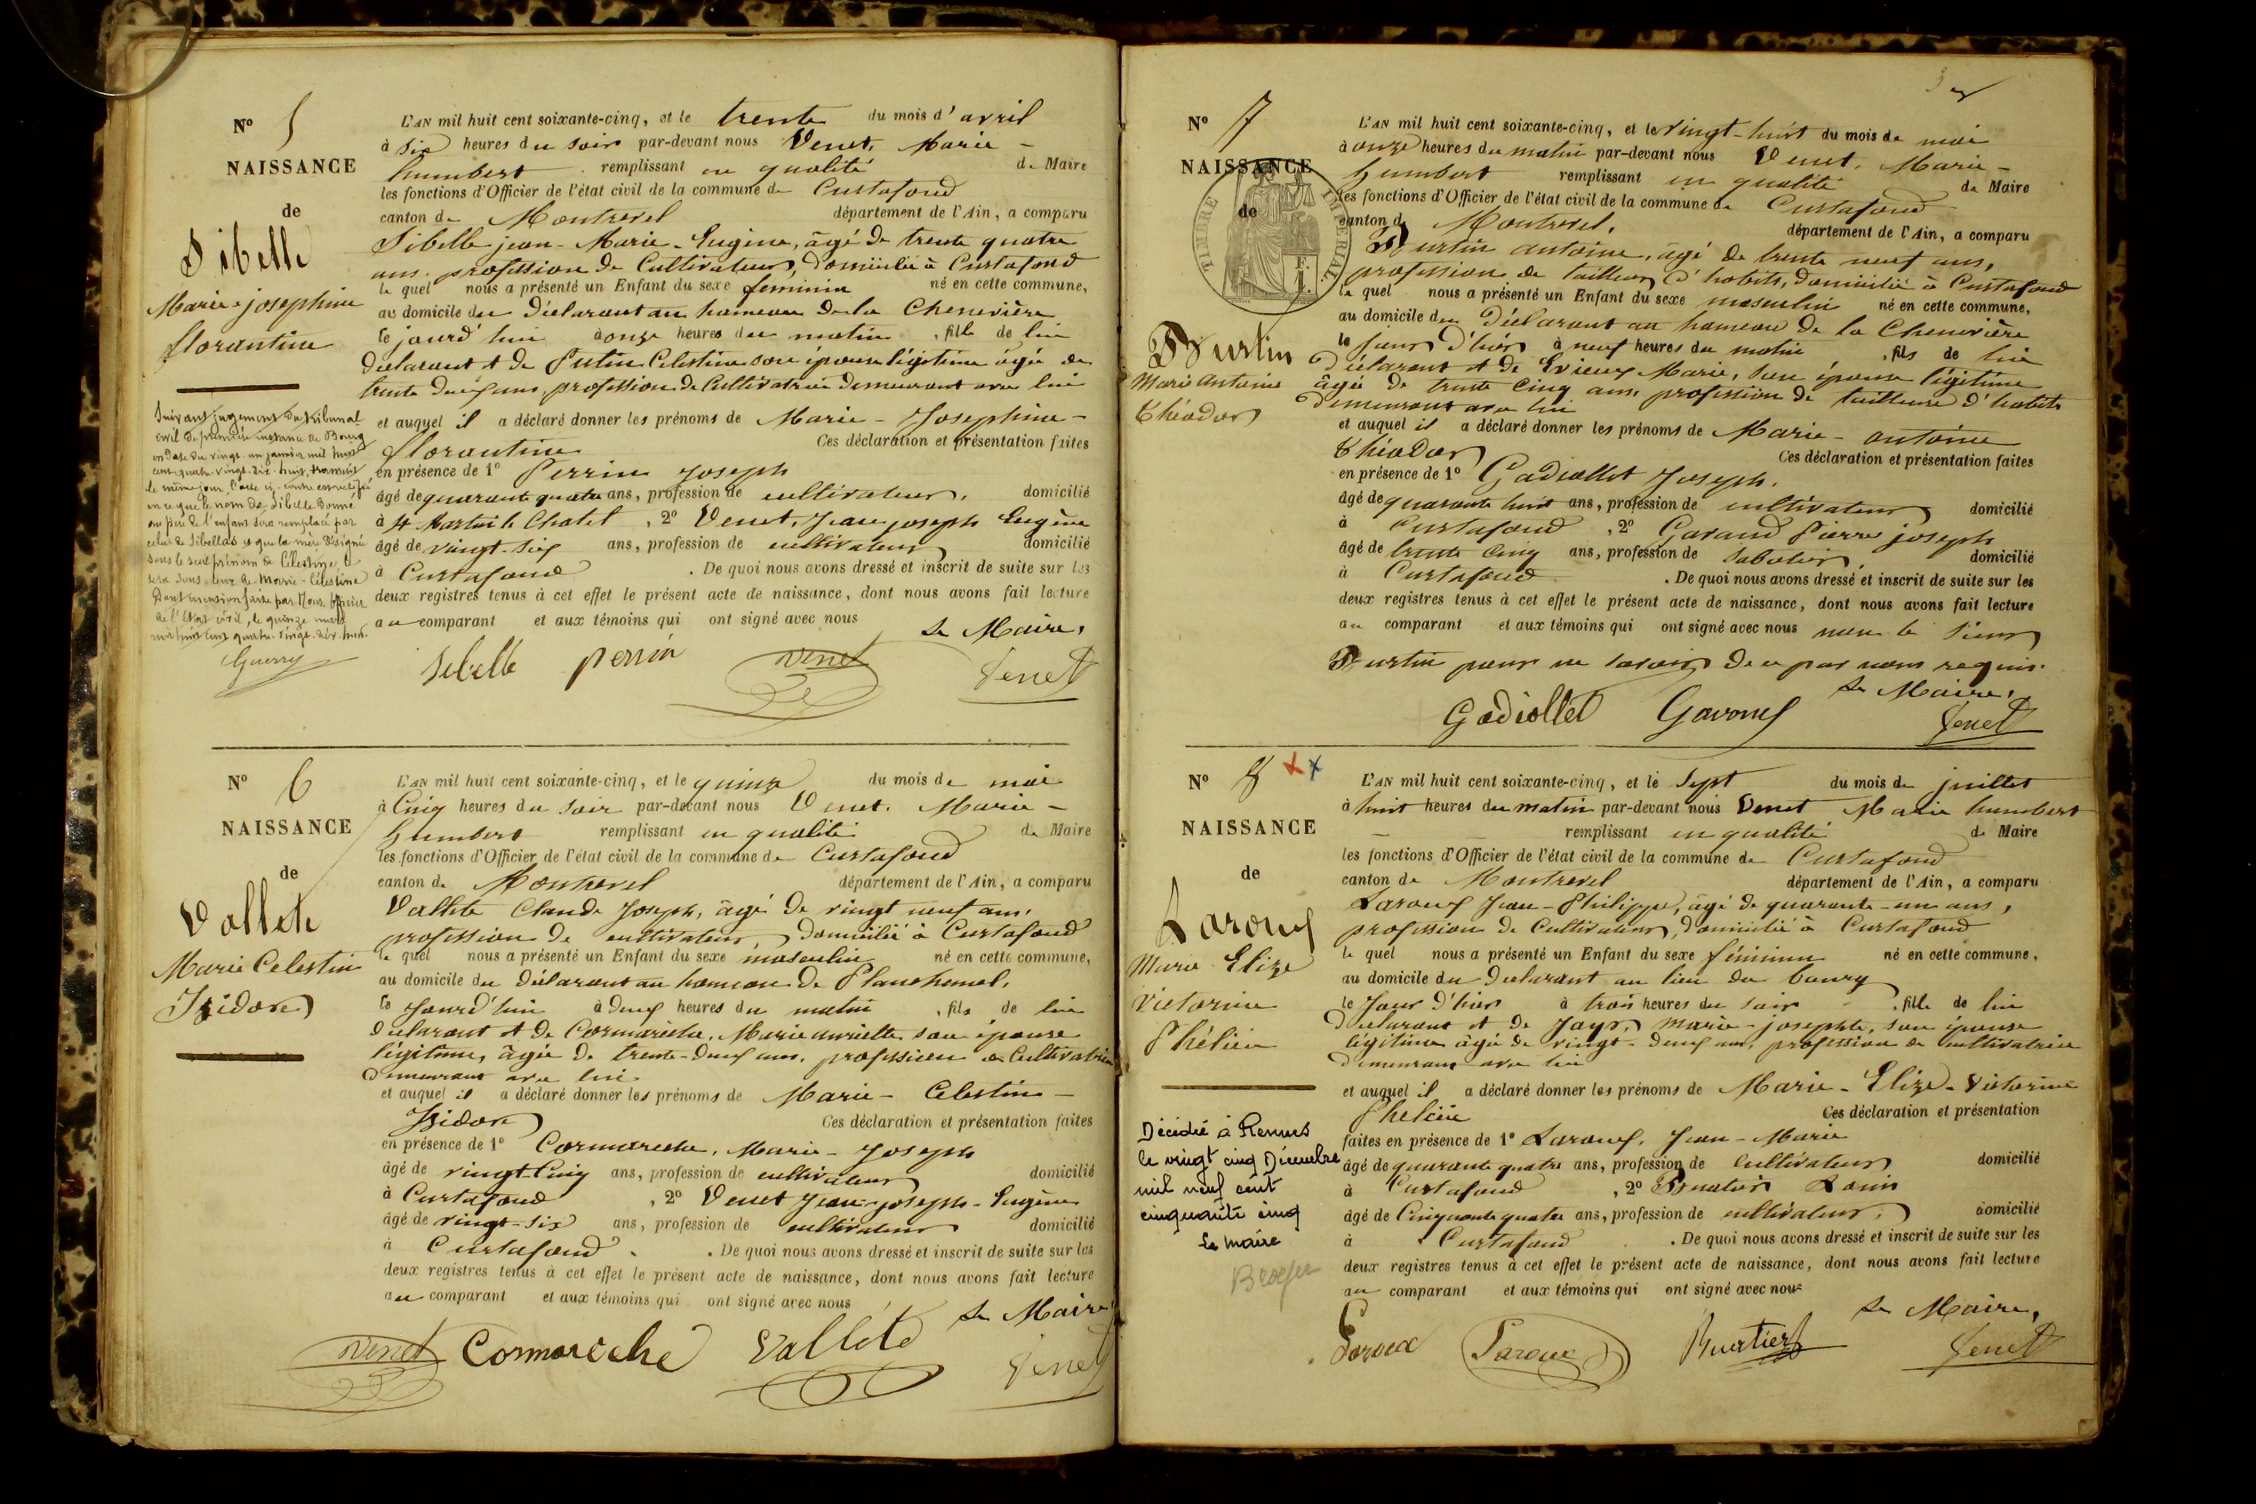 N° 5
NAISSANCE
de
Sibelle
Marie-josephine
florantine
Suivant jugement du tribunal
civil de première instance de Bourg
en date du vingt-un janvier mil huit
cent quatre-vingt-dix-huit, transcrit
le même jour, l'acte ci-contre est rectifié
en ce que le nom de Sibelle donné
au père de l'enfant sera remplacé par
celui de Sibellas et que la mère désigné
sous le seul prénom de Célestine, le
sera sous ceux de Marie-Célestine
Dont mention faite par Nous officier
de l'Etat civil, le quinze mars
mil huit cent quatre-vingt-dix-huit.
Guerry
L'AN mil huit cent soixante-cinq, et le trente du mois d'avril
à six heures du soir par-devant nous Venet, Marie-
humbert remplissant en qualité de Maire
les fonctions d'Officier de l'état civil de la commune de Curtafond
canton de Montrevel département de l'Ain, a comparu
Sibelle jean-Marie-Eugène, âgé de trente quatre
ans profession de Cultivateur, domicilié à Curtafond
le quel nous a présenté un Enfant du sexe feminin né en cette commune,
au domicile du déclarant au hameau de la Chenevière
le jourd'hui à onze heures du matin, fille de lui
déclarant et de Putin Celestine son épouse légitime âgée de
trente deux ans profession de Cultivatrice demeurant avec lui
et auquel il a déclaré donner les prénoms de Marie-Josephine-
florantine Ces déclaration et présentation faites
en présence de 1° Perrin Joseph
âgé de quarante quatre ans, profession de cultivateur, domicilié
à St Martin le Chatel, 2° Venet, Jean joseph Eugène
âgé de vingt-six ans, profession de cultivateur domicilié
à Curtafond. De quoi nous avons dressé et inscrit de suite sur les
deux registres tenus à cet effet le présent acte de naissance, dont nous avons fait lecture
au comparant et aux témoins qui ont signé avec nous
Le Maire,
Sibelle perrin Venet Venet
N° 6
NAISSANCE
de
Vallete
Marie Celestin
Isidor
L'AN mil huit cent soixante-cinq, et le quinze du mois de mai
à Cinq heures du soir par-devant nous Venet. Marie-
humbert remplissant en qualité de Maire
les fonctions d'Officier de l'état civil de la commune de Curtafond
canton de Montrevel département de l'Ain, a comparu
Vallete Claude Joseph, âgé de vingt neuf ans,
profession de cultivateur, domicilié à Curtafond
le quel nous a présenté un Enfant du sexe masculin né en cette commune,
au domicile du déclarant au hameau de Planchemel,
le Jourd'hui à deux heures du matin, fils de lui
déclarant et de Cormarèche, Marie aurielle son épouse
légitime, âgée de trente-deux ans, profession de Cultivatrice
demeurant avec lui
et auquel il a déclaré donner les prénoms de Marie-Celestin-
Isidor Ces déclaration et présentation faites
en présence de 1° Cormareche, Marie-Joseph
âgé de vingt-Cinq ans, profession de cultivateur domicilié
à Curtafond, 2° Venet Jean-joseph-Eugène
âgé de vingt-six ans, profession de cultivateur domicilié
à Curtafond. De quoi nous avons dressé et inscrit de suite sur les
deux registres tenus à cet effet le présent acte de naissance, dont nous avons fait lecture
au comparant et aux témoins qui ont signé avec nous
Le Maire,
Venet Cormarèche Valléte Venet
3
N° 7
NAISSANCE
de
TIMBRE IMPERIAL
Burtin
Marie Antoine
Théodor
L'AN mil huit cent soixante-cinq, et le vingt-huit du mois de mai
à onze heures du matin par-devant nous Venet. Marie-
humbert remplissant en qualité de Maire
les fonctions d'Officier de l'état civil de la commune de Curtafond
canton de Montrevel. département de l'Ain, a comparu
Burtin antoine, âgé de trente neuf ans,
profession de tailleur d'habits, domicilié à Curtafond
le quel nous a présenté un Enfant du sexe masculin né en cette commune,
au domicile du déclarant au hameau de la Chenevière
le jour d'hier à neuf heures du matin, fils de lui
déclarant et de Evieux Marie, son épouse légitime
âgée de trente cinq ans, profession de tailleuse d'habits
demeurant avec lui
et auquel il a déclaré donner les prénoms de Marie-antoine
théodor Ces déclaration et présentation faites
en présence de 1° Gadiollet Joseph,
âgé de quarante huit ans, profession de cultivateur domicilié
à Curtafond, 2° Garaud Pierre joseph
âgé de trente cinq ans, profession de sabotier, domicilié
à Curtafond. De quoi nous avons dressé et inscrit de suite sur les
deux registres tenus à cet effet le présent acte de naissance, dont nous avons fait lecture
au comparant et aux témoins qui ont signé avec nous non le sieur
Burtin pour ne savoir de ce par nous requis.
Le Maire,
Gadiollet Venet
N° 8
NAISSANCE
de
Laroux
Marie Elize
Victorine
Phélicie
Décédée à Rennes
le vingt cinq Décembre
mil neuf cent
cinquante cinq
Le maire
L'AN mil huit cent soixante-cinq, et le sept du mois de juillet
à huit heures du matin par-devant nous Venet Marie humbert
remplissant en qualité de Maire
les fonctions d'Officier de l'état civil de la commune de Curtafond
canton de Montrevel département de l'Ain, a comparu
Laroux Jean-Philippe, âgé de quarante-un ans,
profession de Cultivateur, domicilié à Curtafond
le quel nous a présenté un Enfant du sexe féminin né en cette commune,
au domicile du déclarant au lieu du bourg
le Jour d'hier à trois heures du soir, fille de lui
déclarant et de Jayr, marie-josephte, son épouse
légitime âgée de vingt-deux ans, profession de cultivatrice
demeurant avec lui
et auquel il a déclaré donner les prénoms de Marie-Elize-Victorine
Phelicie Ces déclaration et présentation
faites en présence de 1° Laroux, Jean-Marie
âgé de quarante quatre ans, profession de Cultivateur domicilié
à Curtafond, 2° Louis
âgé de Cinquante quatre ans, profession de cultivateur, domicilié
à Curtafond. De quoi nous avons dressé et inscrit de suite sur les
deux registres tenus à cet effet le présent acte de naissance, dont nous avons fait lecture
au comparant et aux témoins qui ont signé avec nous
Le Maire,
Laroux Laroux Burtier Venet